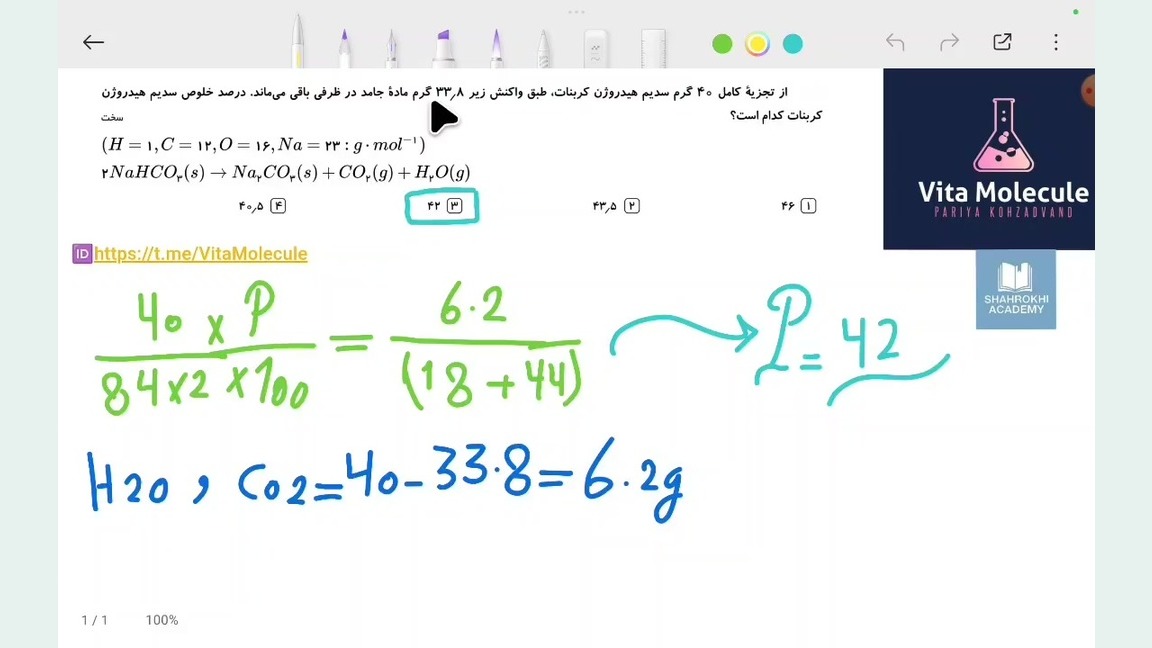 از تجزیهٔ کامل ۴۰ گرم سدیم هیدروژن کربنات، طبق واکنش زیر ۳۳٫۸ گرم مادهٔ جامد در ظرفی باقی می‌ماند. درصد خلوص سدیم هیدروژن
کربنات کدام است؟
سخت
(H = ۱, C = ۱۲, O = ۱۶, Na = ۲۳ : g · mol⁻¹)
۲NaHCO₃(s) → Na₂CO₃(s) + CO₂(g) + H₂O(g)
۱ ۴۶
۲ ۴۳٫۵
۳ ۴۲
۴ ۴۰٫۵
Vita Molecule
PARIYA KOHZADVAND
SHAHROKHI
ACADEMY
ID https://t.me/VitaMolecule
40 x P / 84x2 x100 = 6.2 / (18 + 44) → P = 42
H2O , CO2 = 40 - 33.8 = 6.2g
1 / 1 100%